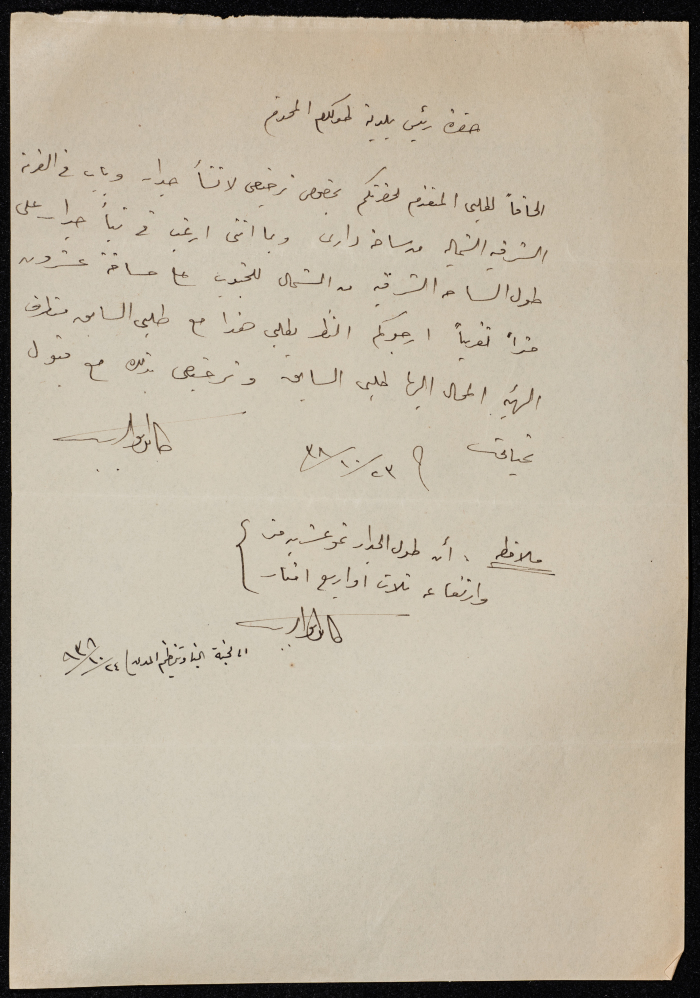 حضرة رئيس بلدية طولكرم المحترم
الحاقاً لطلبي المقدم لحضرتكم بخصوص ترخيص لانشأ جدار وباب في القرنة
الشرقيه الشماليه من ساحة داري وبما انني ارغب في بنأ جدار على
طول الساحه الشرقيه من الشمال للجنوب على مسافة عشرون
متراً تقريباً ارجوكم النظر بطلبي هذا مع طلبي السابق من طرف
الهيئه المحال اليها طلبي السابق وترخيصي بذلك مع قبول
تحياتي
٢٣/١٠/٣٨
ملاحظه، أن طول الجدار نحو عشرين متر
وارتفاعه ثلاث او اربع امتار
الى لجنة البنا وتنظيم المدن ٢٤/١٠/٩٣٨